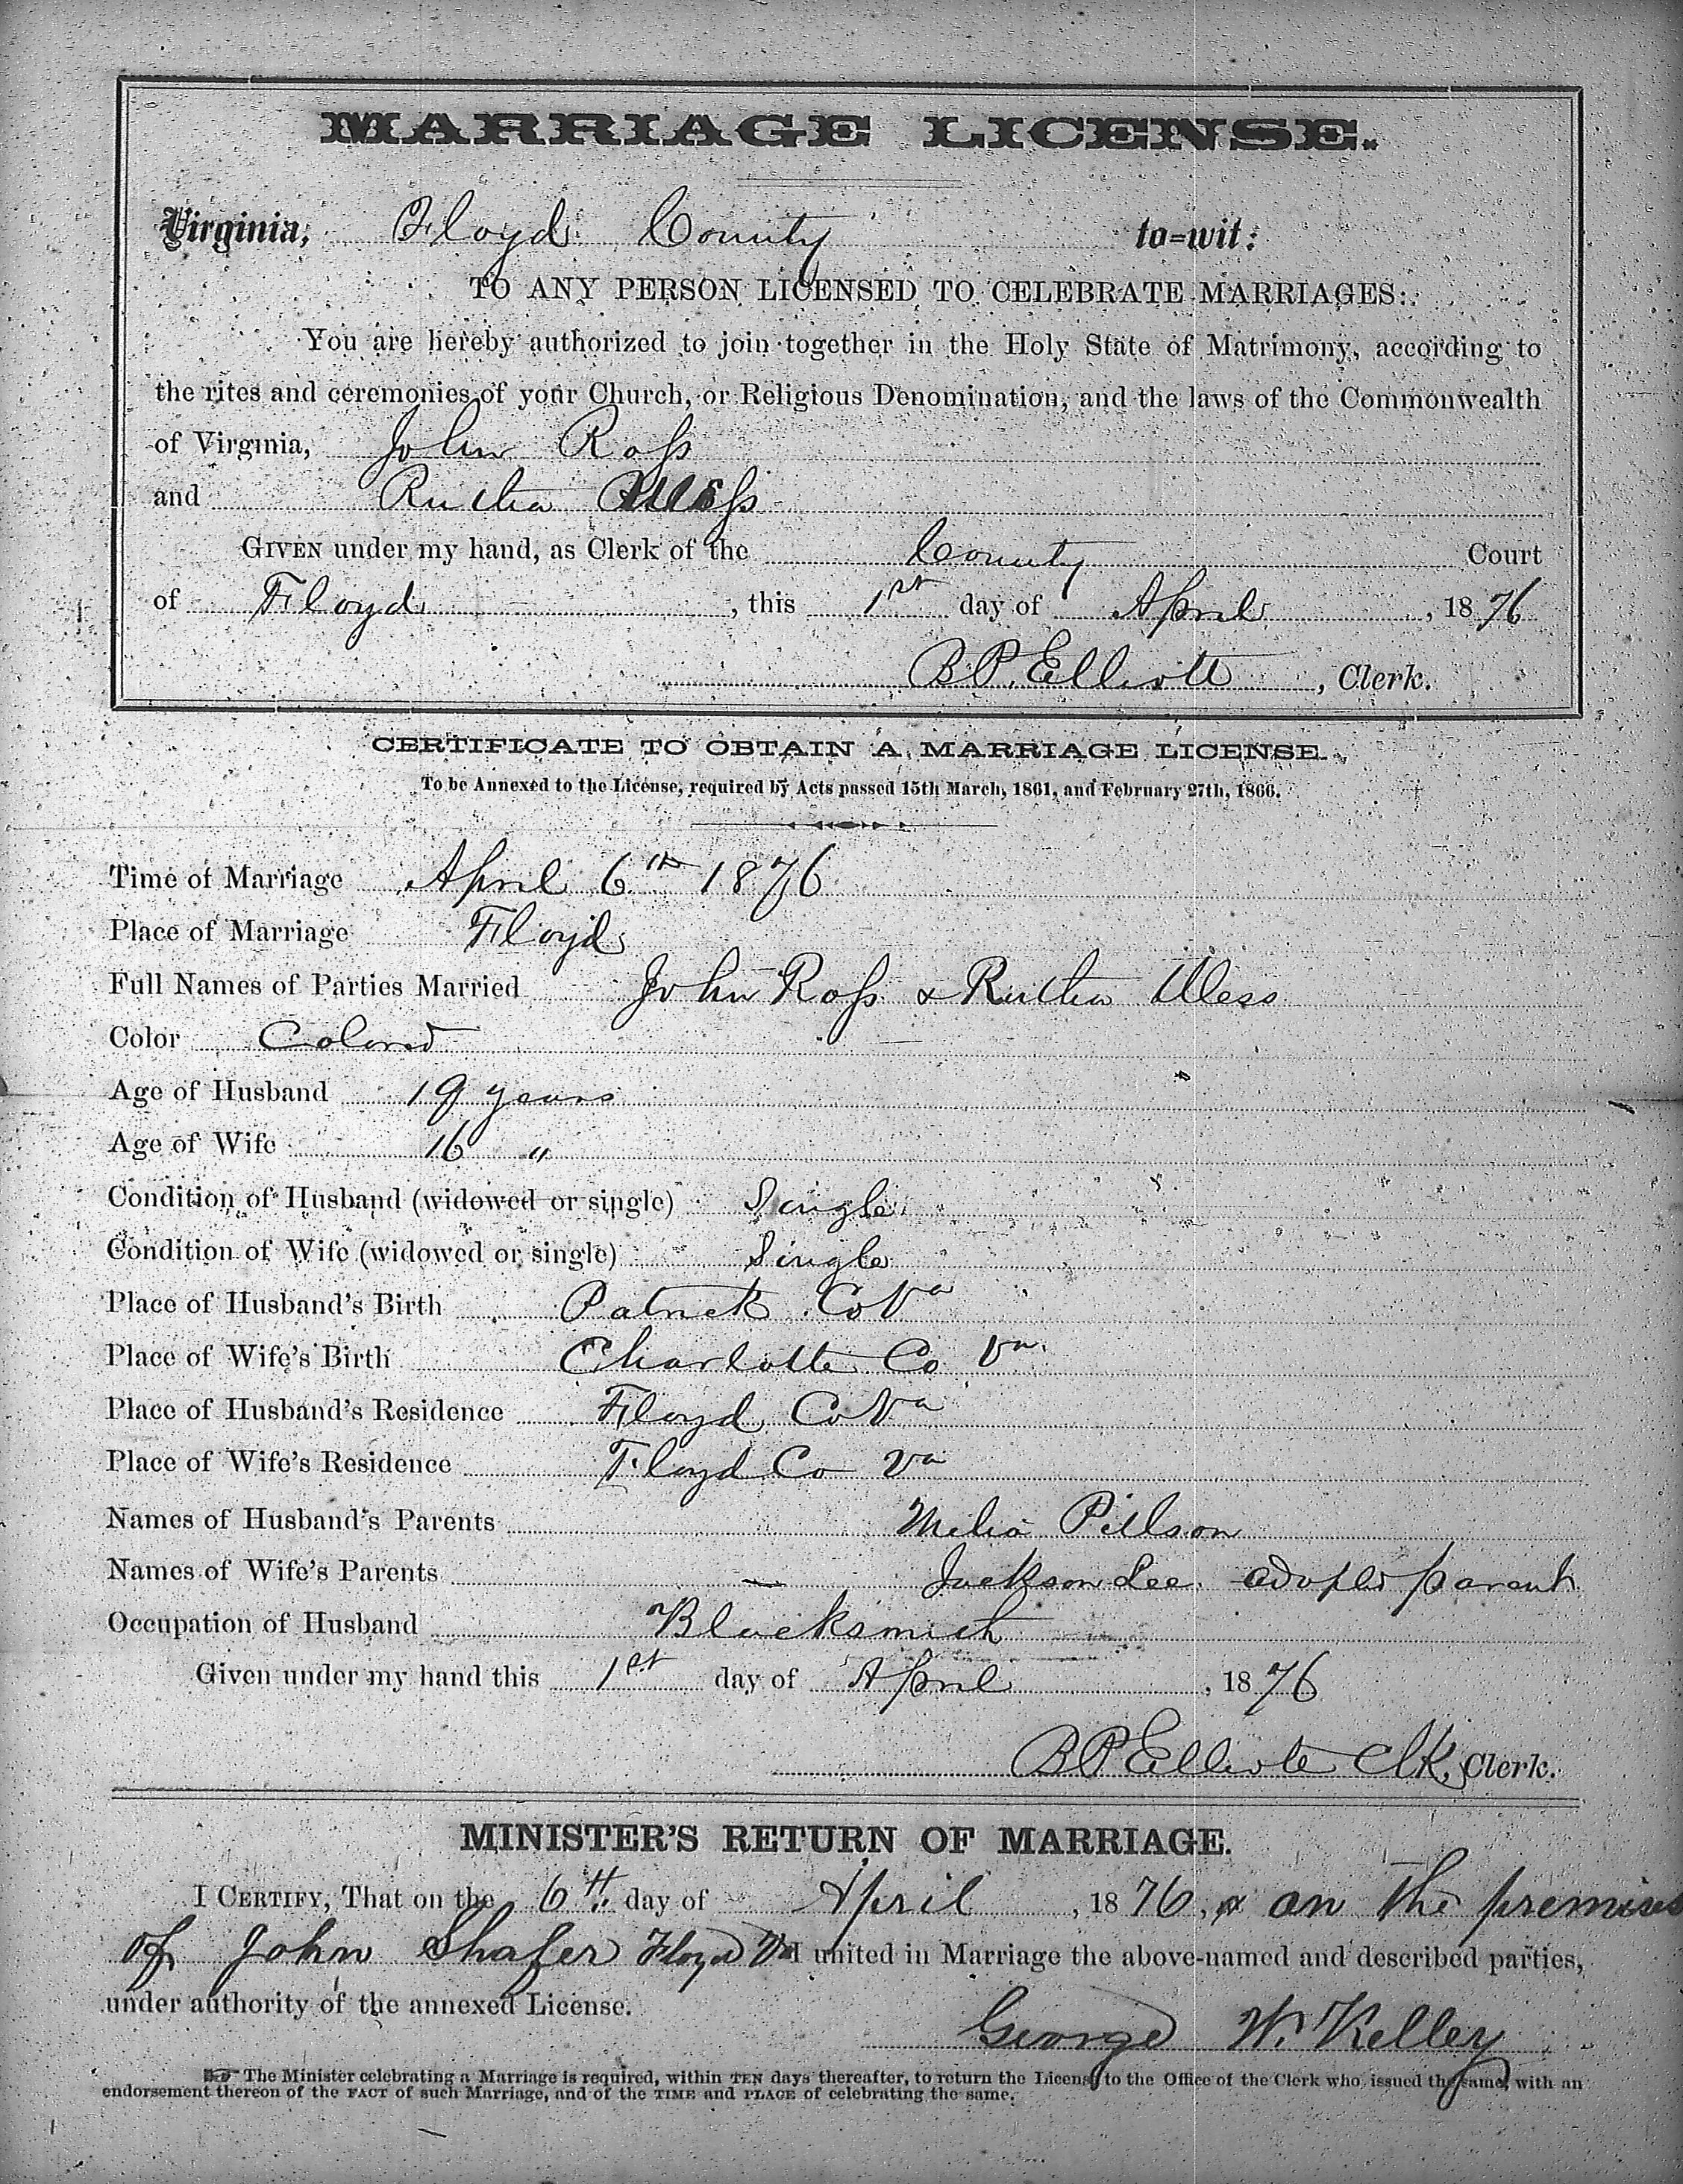 MARRIAGE LICENSE.
Virginia, Floyd County to-wit:
TO ANY PERSON LICENSED TO CELEBRATE MARRIAGES:
You are hereby authorized to join together in the Holy State of Matrimony, according to
the rites and ceremonies of your Church, or Religious Denomination, and the laws of the Commonwealth
of Virginia, John Ross
and Rutha
GIVEN under my hand, as Clerk of the County Court
of Floyd, this 1st day of April, 1876
B.P. Elliott, Clerk.
CERTIFICATE TO OBTAIN A MARRIAGE LICENSE.
To be Annexed to the License, required by Acts passed 15th March, 1861, and February 27th, 1866.
Time of Marriage April 6th 1876
Place of Marriage Floyd
Full Names of Parties Married John Ross & Rutha
Color Colored
Age of Husband 19 years
Age of Wife 16 "
Condition of Husband (widowed or single) Single
Condition of Wife (widowed or single) Single
Place of Husband's Birth Patrick Co Va
Place of Wife's Birth Charlotte Co Va.
Place of Husband's Residence Floyd Co Va
Place of Wife's Residence Floyd Co Va
Names of Husband's Parents Melia Pillson
Names of Wife's Parents — Jackson Lee adopted parent
Occupation of Husband Blacksmith
Given under my hand this 1st day of April, 1876
B P Elliott Clk, Clerk.
MINISTER'S RETURN OF MARRIAGE.
I CERTIFY, That on the 6th day of April, 1876, & on the premises
of John Shafer Floyd Va I united in Marriage the above-named and described parties,
under authority of the annexed License.
George W. Kelley
☞ The Minister celebrating a Marriage is required, within TEN days thereafter, to return the License to the Office of the Clerk who issued the same, with an
endorsement thereon of the FACT of such Marriage, and of the TIME and PLACE of celebrating the same.